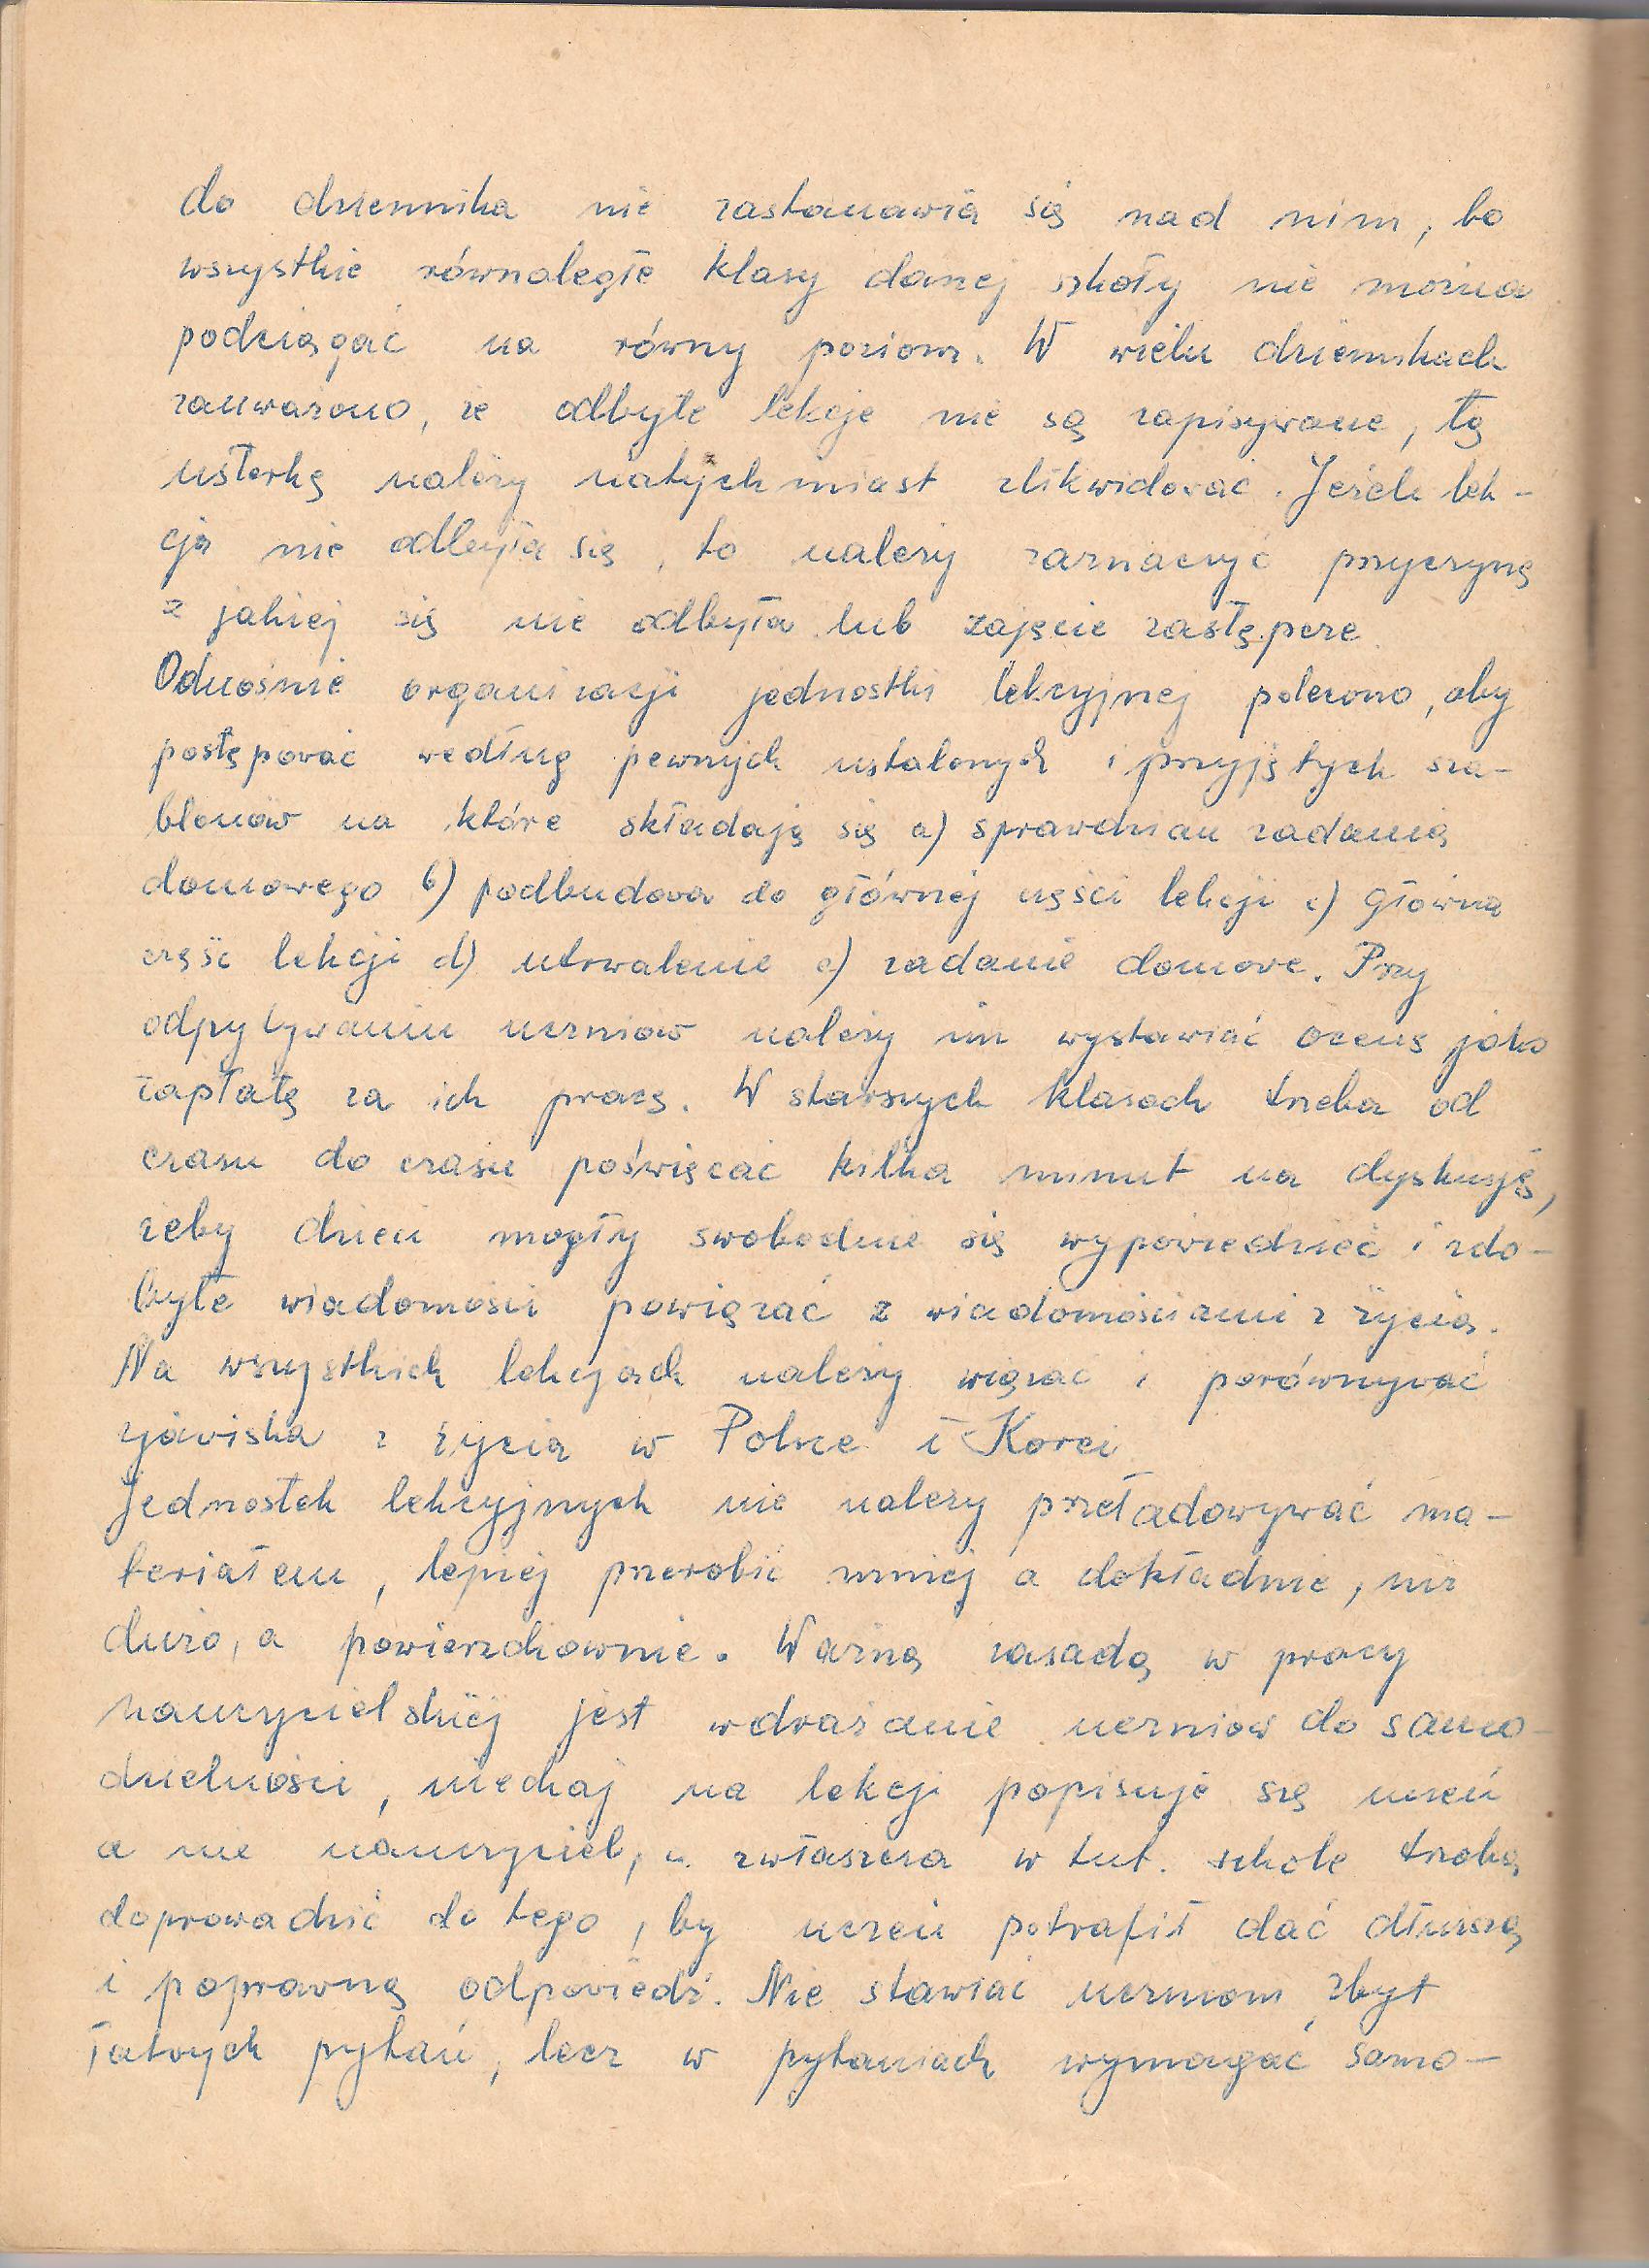 do dziennika nie zastanawia się nad nim, bo
wszystkie równoległe klasy danej szkoły nie można
podciągać na równy poziom. W wielu dziennikach
zauważono, że odbyte lekcje nie są zapisywane, tę
usterkę należy natychmiast zlikwidować. Jeżeli lek-
cja nie odbyła się, to należy zaznaczyć przyczynę
z jakiej się nie odbyła lub zajęcie zastępcze.
Odnośnie organizacji jednostki lekcyjnej polecono, aby
postępować według pewnych ustalonych i przyjętych sza-
blonów na które składają się a) sprawdzian zadania
domowego b) podbudowa do głównej części lekcji c) główna
część lekcji d) utrwalenie e) zadanie domowe. Przy
odpytywaniu uczniów należy im wystawiać ocenę jako
zapłatę za ich pracę. W starszych klasach trzeba od
czasu do czasu poświęcać kilka minut na dyskusję,
żeby dzieci mogły swobodnie się wypowiedzieć i zdo-
byte wiadomości powiązać z wiadomościami z życia.
Na wszystkich lekcjach należy wiązać i porównywać
zjawiska z życia w Polsce i Korei
Jednostek lekcyjnych nie należy przeładowywać ma-
teriałem, lepiej przerobić mniej a dokładnie, niż
dużo, a powierzchownie. Ważną zasadą w pracy
nauczycielskiej jest wdrażanie uczniów do samo-
dzielności, niechaj na lekcji popisuje się uczeń
a nie nauczyciel, a zwłaszcza w tut. szkole trzeba
doprowadzić do tego, by uczeń potrafił dać dłuższą
i poprawną odpowiedź. Nie stawiać uczniom zbyt
łatwych pytań, lecz w pytaniach wymagać samo-